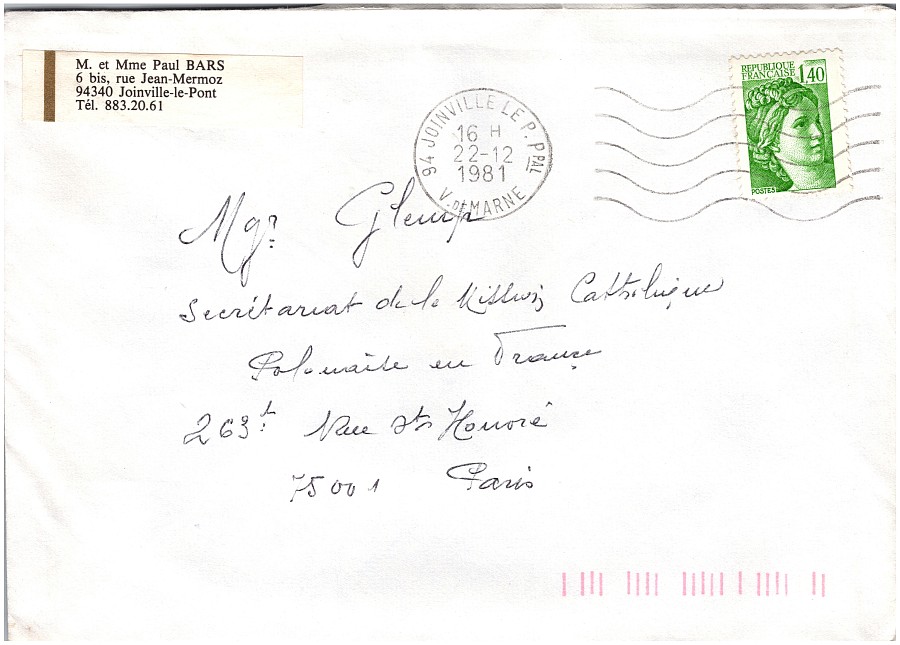 M. et Mme Paul BARS
6 bis, rue Jean-Mermoz
94340 Joinville-le-Pont
Tél. 883.20.61
REPUBLIQUE
FRANÇAISE 1,40
POSTES
94 JOINVILLE LE P. PPAL
16 H
22-12
1981
V. DE MARNE
Mgr Glemp
Secrétariat de la Mission Catholique
Polonaise en France
263 Rue St Honoré
75001 Paris